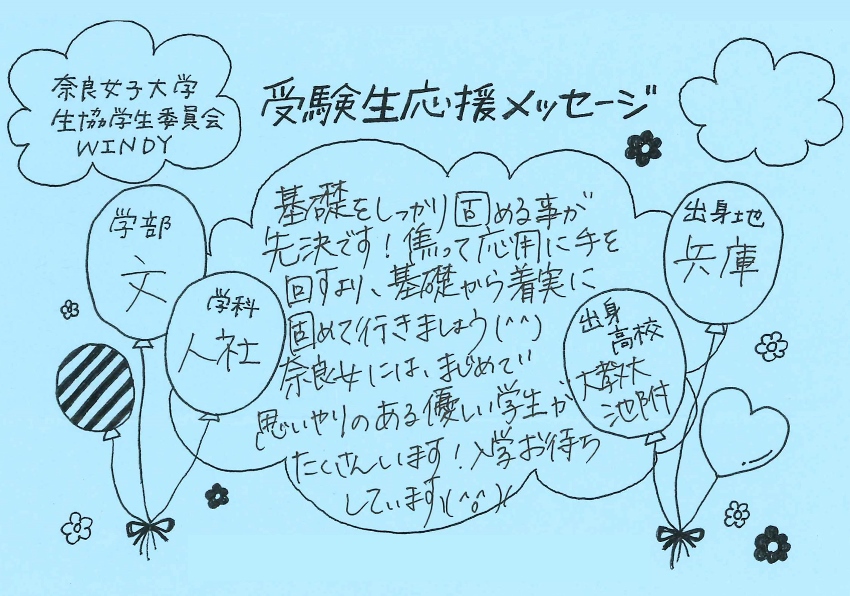 奈良女子大学
生協学生委員会
WINDY
受験生応援メッセージ
学部
文
学科
人社
基礎をしっかり固める事が
先決です!焦って応用に手を
回すより、基礎から着実に
固めて行きましょう(^^)
奈良女には、まじめで
思いやりのある優しい学生が
たくさんいます!入学お待ち
しています!(^o^)/
出身地
兵庫
出身
高校
大教大
池附